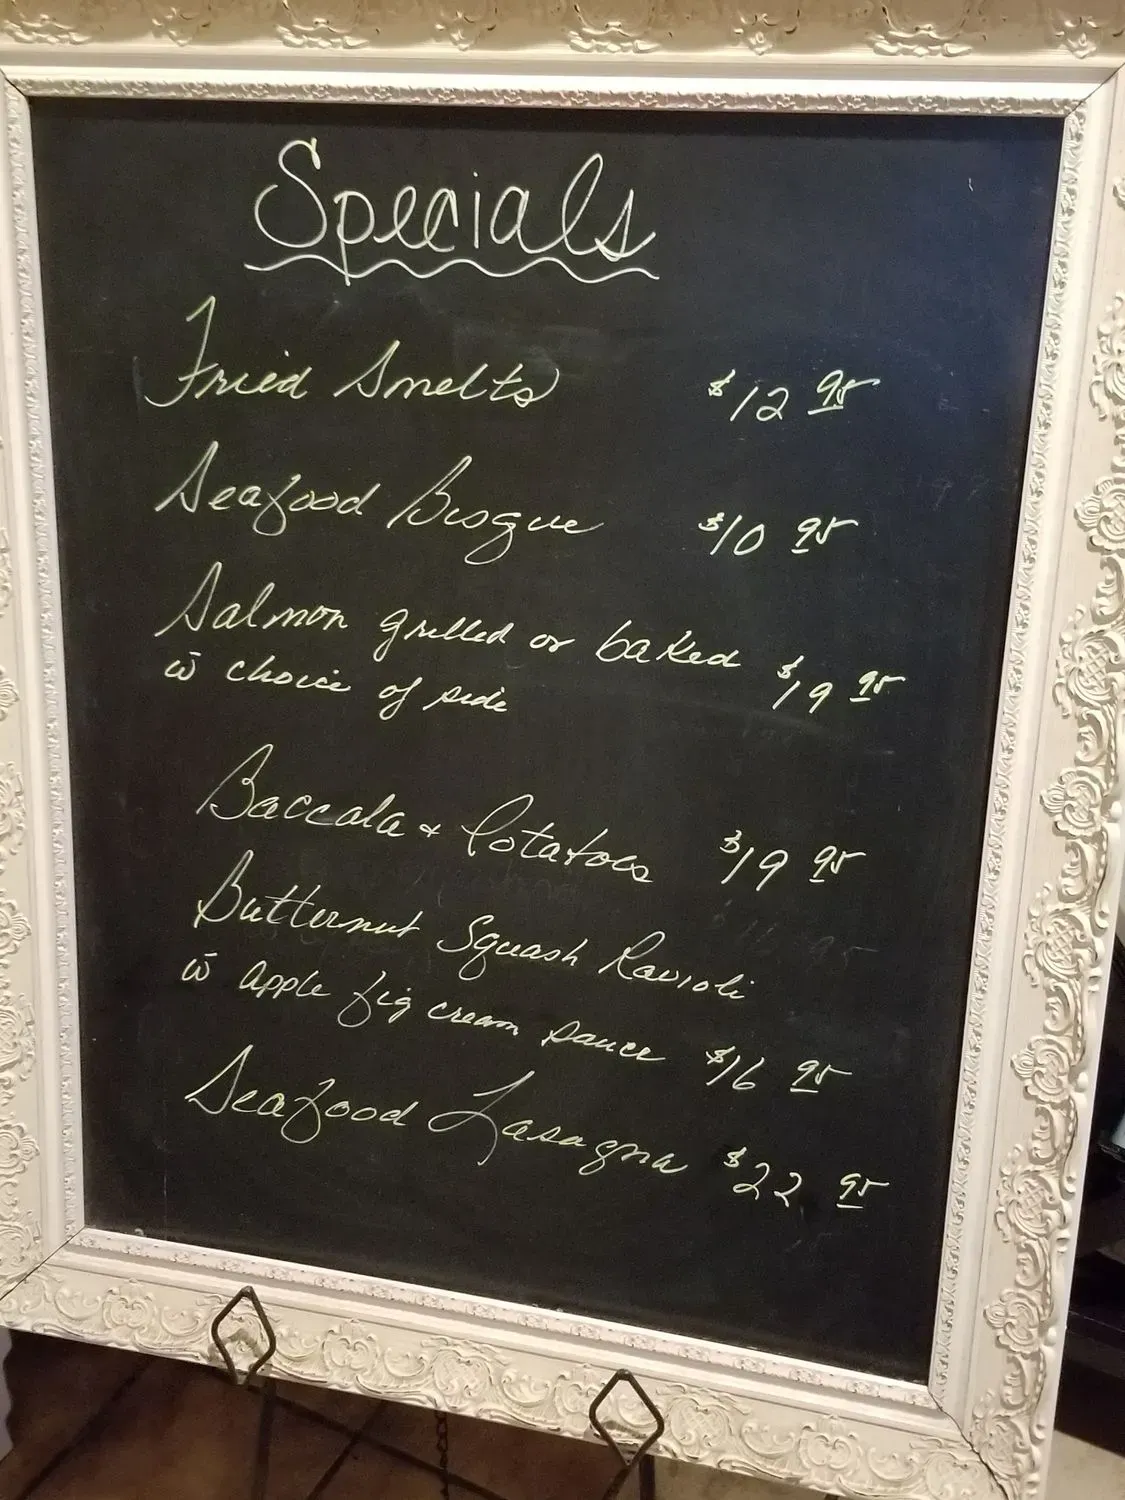 Specials
Fried Smelts $12 95
Seafood Bisque $10 95
Salmon grilled or baked $19 95
w̄ choice of side
Baccala + Potatoes $19 95
Butternut Squash Ravioli
w̄ apple fig cream sauce $16 95
Seafood Lasagna $22 95